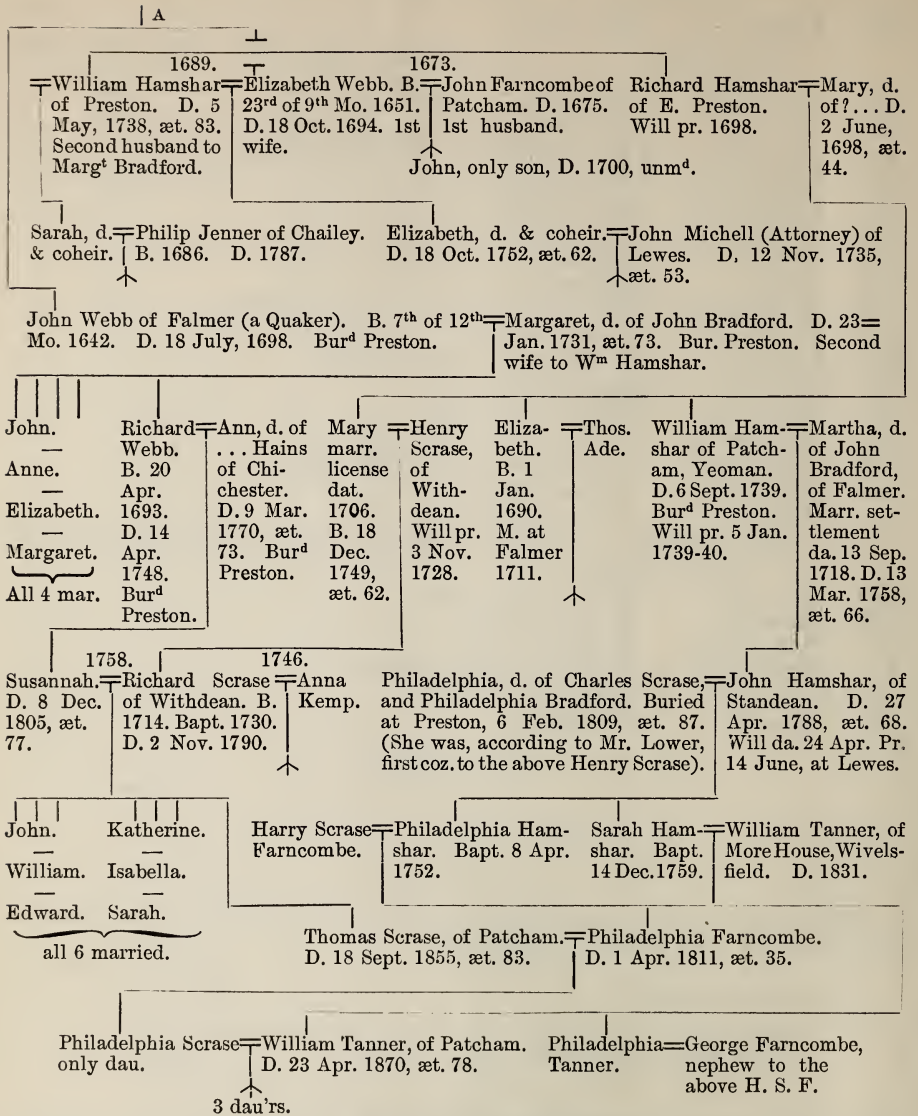 A
1689.
1673.
William Hamshar
of Preston. D. 5
May, 1738, æt. 83.
Second husband to
Marg^t Bradford.
Elizabeth Webb. B.
23rd of 9th Mo. 1651.
D. 18 Oct. 1694. 1st
wife.
John Farncombe of
Patcham. D. 1675.
1st husband.
John, only son, D. 1700, unm^d.
Richard Hamshar
of E. Preston.
Will pr. 1698.
Mary, d.
of?... D.
2 June,
1698, æt.
44.
Sarah, d.
& coheir.
Philip Jenner of Chailey.
B. 1686. D. 1787.
Elizabeth, d. & coheir.
D. 18 Oct. 1752, æt. 62.
John Michell (Attorney) of
Lewes. D, 12 Nov. 1735,
æt. 53.
John Webb of Falmer (a Quaker). B. 7th of 12th
Mo. 1642. D. 18 July, 1698. Bur^d Preston.
Margaret, d. of John Bradford. D. 23=
Jan. 1731, æt. 73. Bur. Preston. Second
wife to W^m Hamshar.
John.
—
Anne.
—
Elizabeth.
—
Margaret.
All 4 mar.
Richard
Webb.
B. 20
Apr.
1693.
D. 14
Apr.
1748.
Bur^d
Preston.
Ann, d. of
... Hains
of Chi-
chester.
D. 9 Mar.
1770, æt.
73. Bur^d
Preston.
Mary
marr.
license
dat.
1706.
B. 18
Dec.
1749,
æt. 62.
Henry
Scrase,
of
With-
dean.
Will pr.
3 Nov.
1728.
Eliza-
beth.
B. 1
Jan.
1690.
M. at
Falmer
1711.
Thos.
Ade.
William Ham-
shar of Patch-
am, Yeoman.
D. 6 Sept. 1739.
Bur^d Preston.
Will pr. 5 Jan.
1739-40.
Martha, d.
of John
Bradford,
of Falmer.
Marr. set-
tlement
da. 13 Sep.
1718. D. 13
Mar. 1758,
æt. 66.
1758.
1746.
Susannah.
D. 8 Dec.
1805, æt.
77.
Richard Scrase
of Withdean. B.
1714. Bapt. 1730.
D. 2 Nov. 1790.
Anna
Kemp.
Philadelphia, d. of Charles Scrase,
and Philadelphia Bradford. Buried
at Preston, 6 Feb. 1809, æt. 87.
(She was, according to Mr. Lower,
first coz. to the above Henry Scrase).
John Hamshar, of
Standean. D. 27
Apr. 1788, æt. 68.
Will da. 24 Apr. Pr.
14 June, at Lewes.
John.
—
William.
—
Edward.
Katherine.
—
Isabella.
—
Sarah.
all 6 married.
Harry Scrase
Farncombe.
Philadelphia Ham-
shar. Bapt. 8 Apr.
1752.
Sarah Ham-
shar. Bapt.
14 Dec. 1759.
William Tanner, of
More House, Wivels-
field. D. 1831.
Thomas Scrase, of Patcham.
D. 18 Sept. 1855, æt. 83.
Philadelphia Farncombe.
D. 1 Apr. 1811, æt. 35.
Philadelphia Scrase
only dau.
William Tanner, of Patcham.
D. 23 Apr. 1870, æt. 78.
3 dau'rs.
Philadelphia
Tanner.
George Farncombe,
nephew to the
above H. S. F.